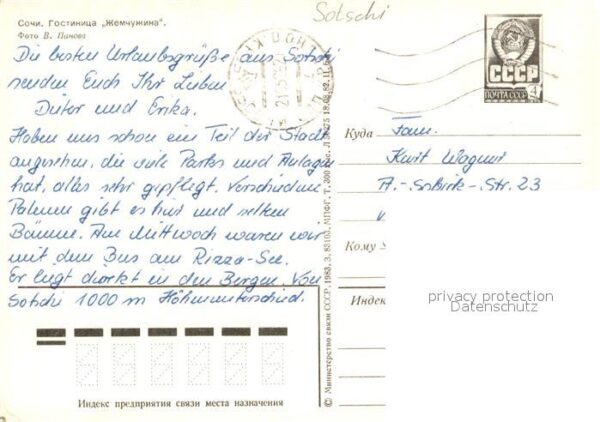 Sotschi
Сочи. Гостиница „Жемчужина".
Фото В. Панова
Die besten Urlaubsgrüße aus Sotschi
senden Euch Ihr Lieben
Dieter und Erika.
Haben uns schon ein Teil der Stadt
angesehen, die viele Parks und Anlagen
hat, alles sehr gepflegt. Verschiedene
Palmen gibt es hier und selten
Bäume. Am Mittwoch waren wir
mit dem Bus am Rizza-See.
Er liegt direkt in den Bergen. Von
Sotschi 1000 m Höhenunterschied.
СССР
ПОЧТА СССР
4
Куда
Fam.
Kurt Wagner
Str. 23
Кому
Индек
privacy protection
Datenschutz
© Министерство связи СССР. 1983. З. 83103. МПФГ. Т. 300
Индекс предприятия связи места назначения